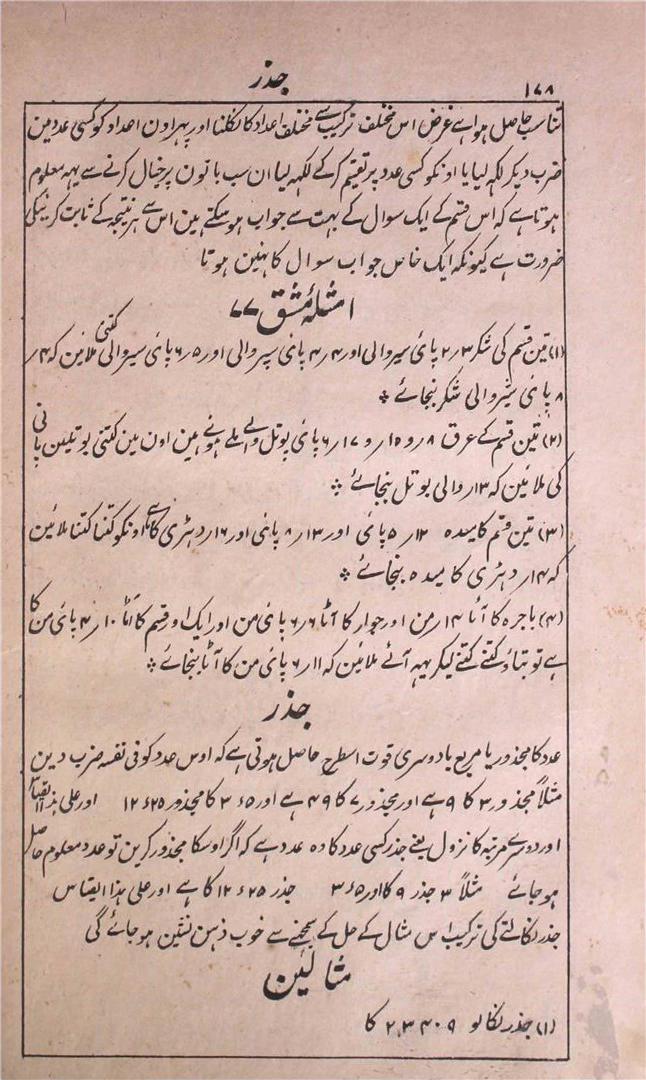 ۱۷۸
جذر
تناسب حاصل ہوا ہے غرض اس مختلف ترکیب سے مختلف اعداد کا نکلنا اور پہر اون اعداد کو کسی عدد مین
ضرب دیکر لکہہ لیا یا اونکو کسی عدد پر تقیم کر کے لکہہ لیا ان سب باتون پر خیال کرنے سے یہہ معلوم
ہوتا ہے کہ اس قسم کے ایک سوال کے بہت سے جواب ہو سکتے ہین اس سے ہر نتیجہ کے ثابت کرنیکی
ضرورت ہے کیونکہ ایک خاص جواب سوال کا ہنین ہوتا
امثلہ مشق ۷۷
(۱) تین قسم کی شکر ۳؍۲ پائی سیر والی اور ۴؍۴ پائی سیر والی اور ۵؍۶ پائی سیر والی کتنی ملائین کہ ۴؍
۸ پای سیر والی شکر بنجائے
(۲) تین قسم کے عرق ۸؍ و ۱۵؍ و ۱۷؍۶ پائی بوتل والے ملے ہوئے ہین اون مین کتنی بوتلین پانی
کی ملائین کہ ۱۳؍ والی بوتل بنجائے
(۳) تین قسم کا میدہ ۱۲؍ ۵ پائی اور ۱۳؍ ۸ پائی اور ۱۶؍ دہڑی کا ہے اونکو کتنا کتنا ملائین
کہ ۱۴؍ دہڑی کا میدہ بنجائے
(۴) باجرہ کا آٹا ۱۴؍ من اور جوار کا آٹا ۶؍۶ پائی من اور ایک اور قسم کا آٹا ۱۰؍۴ پائی من کا
ہے تو بتاؤ کتنے کتنے لیکر یہہ آٹے ملائین کہ ۱۱؍۶ پائی من کا آٹا بنجائے
جذر
عدد کا مجذور یا مربع یا دوسری قوت اسطرح حاصل ہوتی ہے کہ اوس عدد کو فی نفسہ ضرب دین
مثلاً مجذور ۳ کا ۹ ہے اور مجذور ۷ کا ۴۹ ہے اور ۳ء۵ کا مجذور ۱۲ء۲۵ اور علی ہذا القیاس
اور دوسرے مرتبہ کا نزول یعنے جذر کسی عدد کا وہ عدد ہے کہ اگر اوسکا مجذور کرین تو عدد معلوم حاصل
ہو جائے مثلاً ۳ جذر ۹ کا اور ۳ء۵ جذر ۱۲ء۲۵ کا ہے اور علی ہذا القیاس
جذر نکالنے کی ترکیب اس مثال کے حل کے سمجھنے سے خوب ذہن نشین ہو جائے گی
مثالین
(۱) جذر نکالو ۲,۳۴۰۹ کا